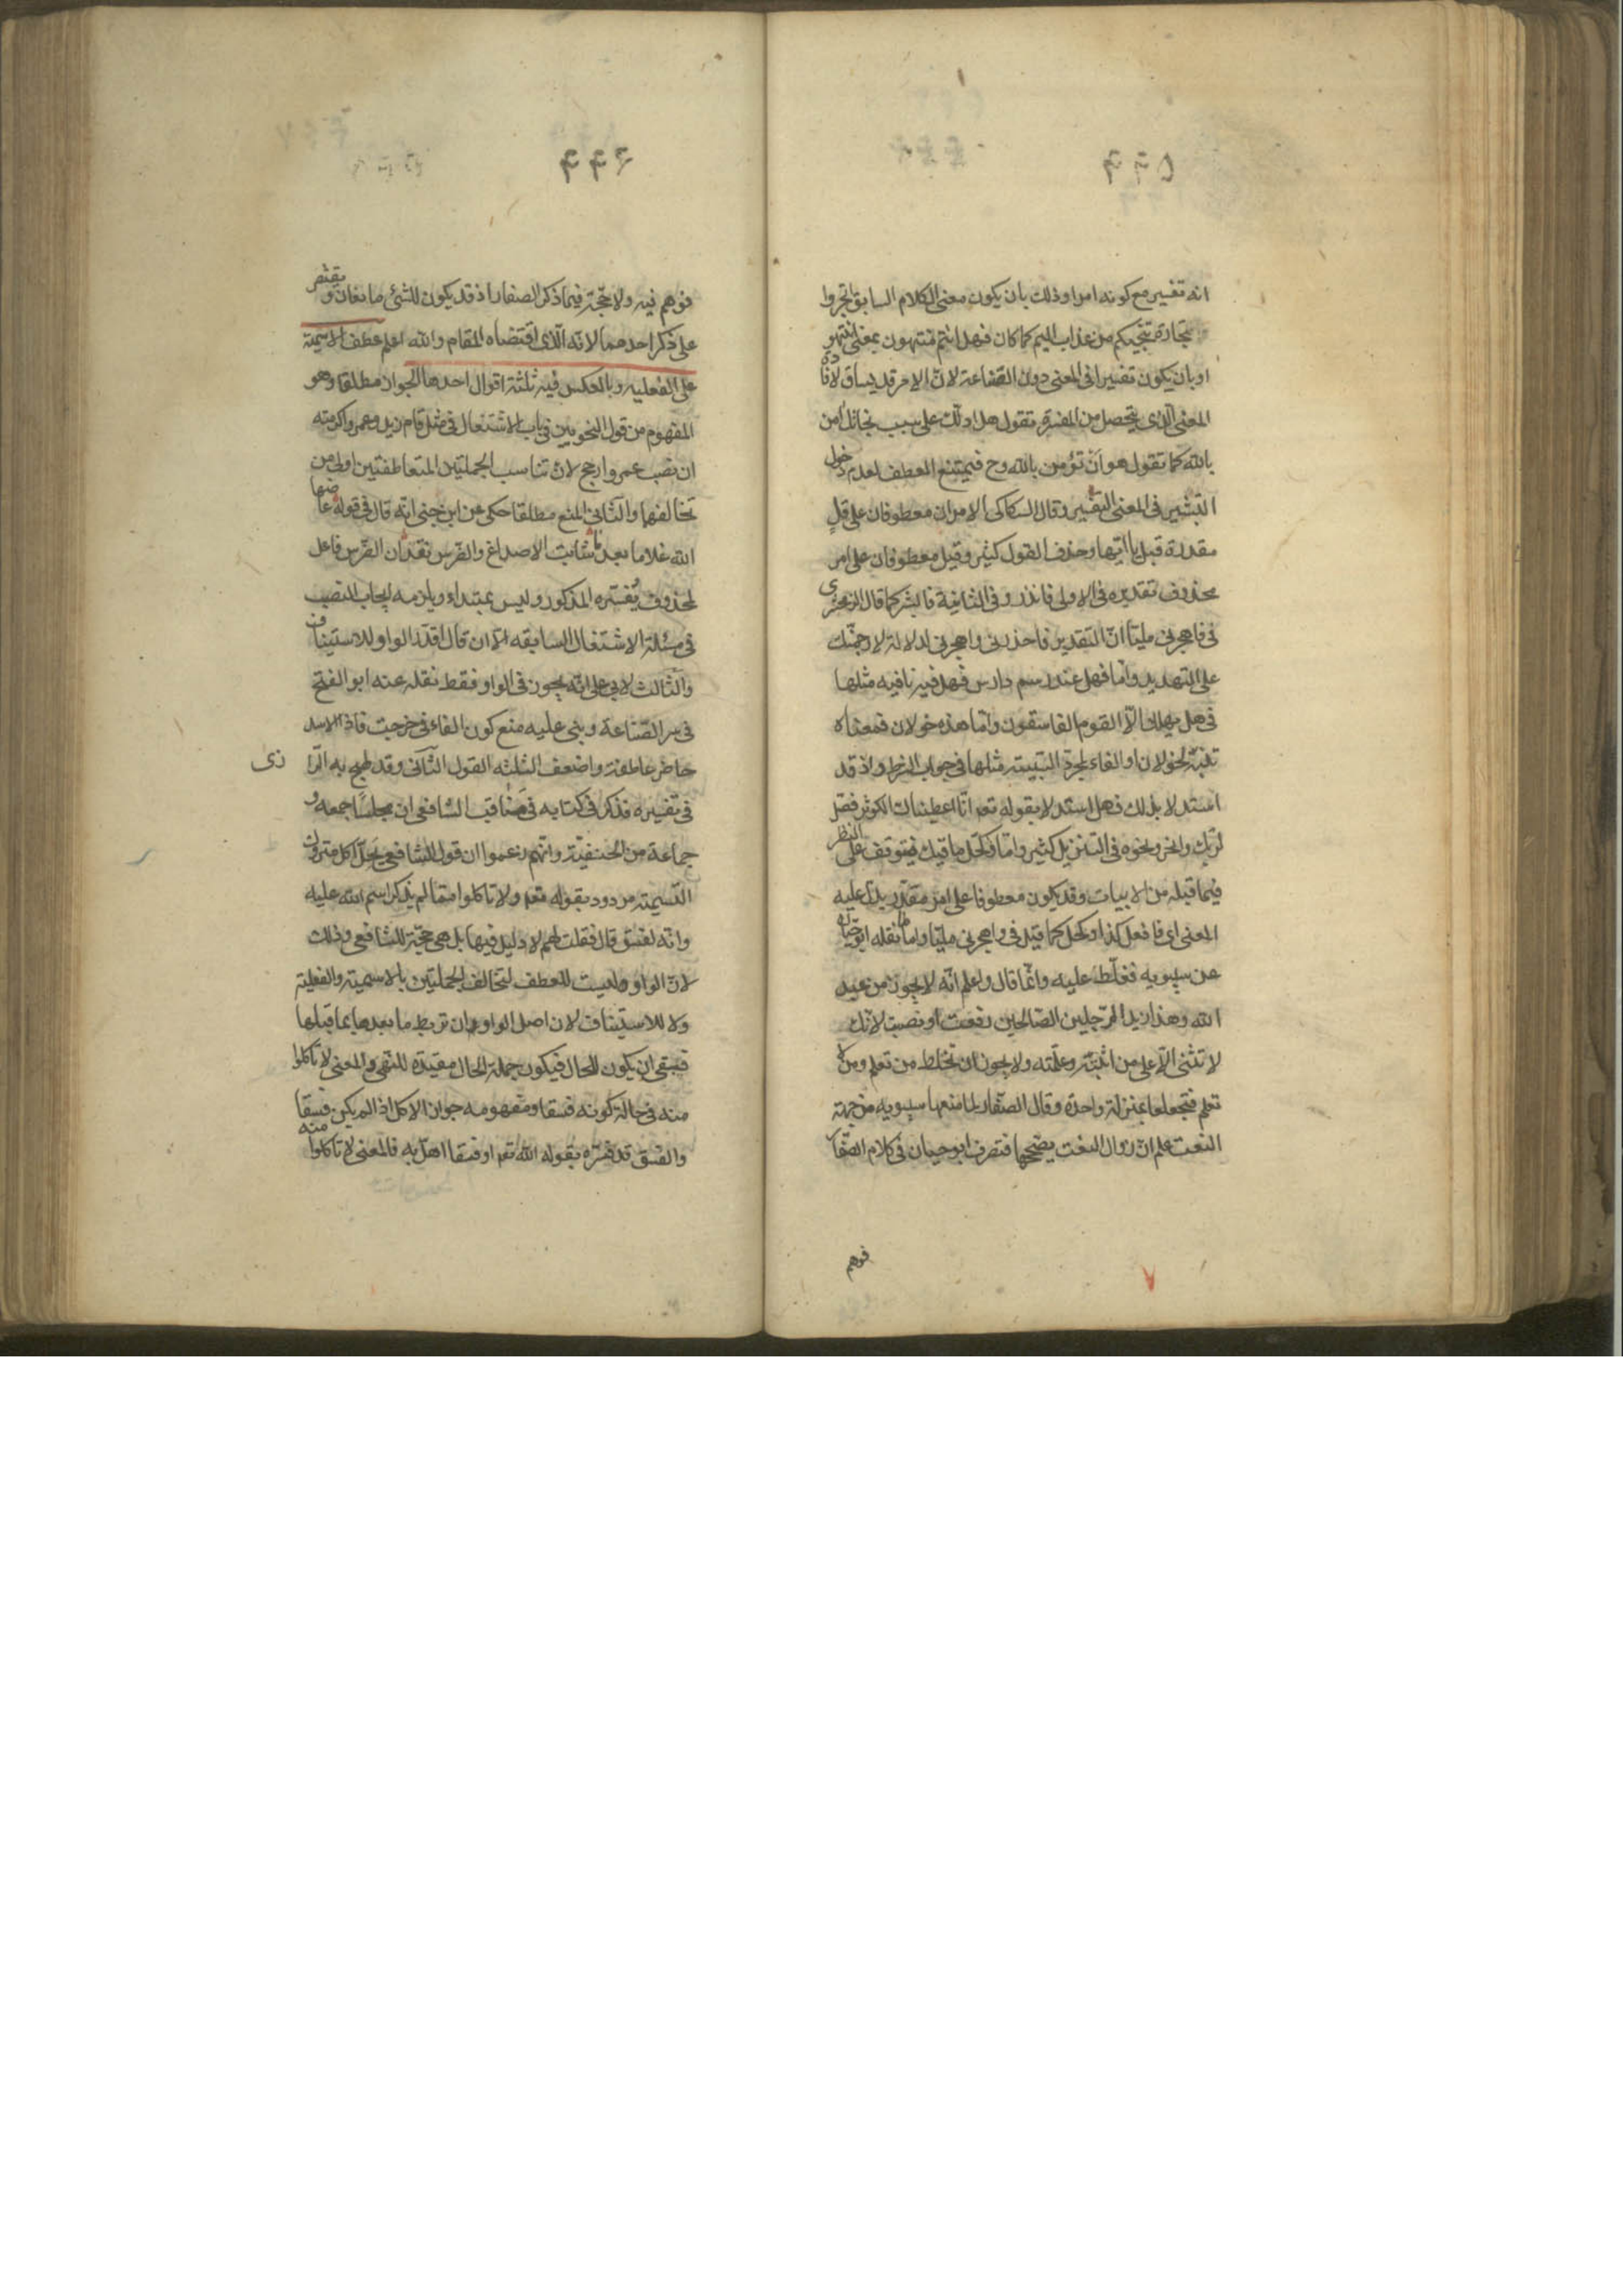 انه تفسير مع كونه امرا وذلك بان يكون معنى الكلام السابق اتجروا
تجارة تنجيكم من عذاب اليم كما كان فهل انتم منتهون بمعنى انتهوا
او بان يكون تفسيرا فى المعنى دون الصناعة لان الامر قد يساق لافادة
المعنى الذى يتحصل من المفسرة تقول هل ادلك على سبب نجاتك امن
بالله كما تقول هو ان تؤمن بالله وح فيمتنع العطف لعدم دخول
التبشير فى المعنى التفسير وقال السكاكى الامران معطوفان على قل
مقدرة قبل يا ايها وحذف القول كثير وقيل معطوفان على امر
محذوف تقديره فى الاولى فانذر وفى الثانية فابشر كما قال الزمخشرى
فى فاهجرنى مليا ان التقدير فاحذرنى واهجرنى لدلالة لارجمنك
على التهديد واما فهل عند رسم دارس فهل فيه نافيه مثلها
فى هل يهلك الا القوم الفاسقون واما هذه خولان فمعناه
تنبه لخولان او الفاء لمجرد السببية مثلها فى جواب الشرط واذ قد
استدلا بذلك فهل استدلا بقوله تعم انا اعطيناك الكوثر فصل
لربك وانحر ونحوه فى التنزيل كثير واما وكحل ماقيك فيتوقف على النظر
فيما قبله من الابيات وقد يكون معطوفا على امر مقدر يدل عليه
المعنى اى فافعل كذا وكحل كما قيل فى واهجرنى مليا واما ما نقله ابو حيان
عن سيبويه فغلط عليه وانما قال واعلم انه لا يجوز من عبد
الله وهذا زيد الرجلين الصالحين رفعت او نصبت لانك
لا تثنى الا على من اثبته وعلمته ولا يجوز ان تخلط من تعلم ومن لا
تعلم فتجعلهما بمنزلة واحدة وقال الصفار لما منعها سيبويه من جهة
النعت علم ان زوال النعت يصححها فتصرف ابو حيان فى كلام الصفار
فوهم
فوهم فيه ولا حجة فيما ذكر الصفار اذ قد يكون للشئ مانعان ويقتصر
على ذكر احدهما لانه الذى اقتضاه المقام والله اعلم عطف الاسمية
على الفعليه وبالعكس فيه ثلثة اقوال احدها الجواز مطلقا وهو
المفهوم من قول النحويين فى باب الاشتغال فى مثل قام زيد وعمرو اكرمته
ان نصب عمرو ارجح لان تناسب الجملتين المتعاطفتين اولى من
تخالفهما والثانى المنع مطلقا حكى عن ابن جنى انه قال فى قوله عاضها
الله غلاما بعد ما شابت الاصداغ والضرس نقد ان الضرس فاعل
لمحذوف يفسره المذكور وليس بمبتداء ويلزمه ايجاب النصب
فى مسئلة الاشتغال السابقه الا ان قال اقدر الواو للاستيناف
والثالث لابى على انه يجوز فى الواو فقط نقله عنه ابو الفتح
فى سر الصناعة وبنى عليه منع كون الفاء فى خرجت فاذا الاسد
حاضر عاطفة واضعف الثلثه القول الثانى وقد لهج به الرازى
فى تفسيره فذكر فى كتابه فى مناقب الشافعى ان مجلسا جمعه و
جماعة من الحنفية وانهم زعموا ان قول الشافعى يحل اكل متروك
التسمية مردود بقوله تعم ولا تاكلوا مما لم يذكر اسم الله عليه
وانه لفسق قال فقلت لهم لا دليل فيها بل هى حجة للشافعى وذلك
لان الواو وليست للعطف لتخالف الجملتين بالاسمية والفعلية
ولا للاستيناف لان اصل الواو ان تربط ما بعدها بما قبلها
فبقى ان يكون للحال فيكون جملة الحال مقيدة للنهى والمعنى لا تاكلوا
منه فى حالة كونه فسقا ومفهومه جواز الاكل اذا لم يكن فسقا
والفسق قد فسره بقوله الله تعم او فسقا اهل به فالمعنى لا تاكلوا منه